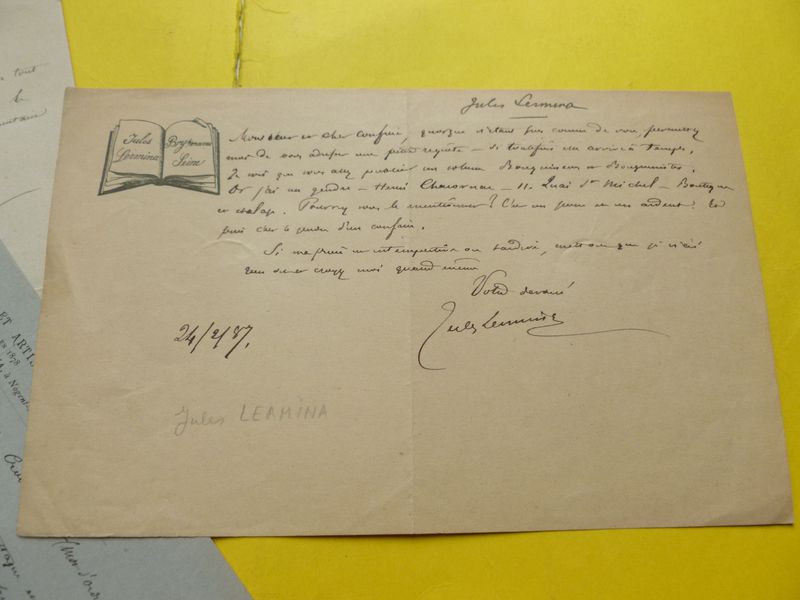 Jules Lermina
Jules
Lermina
Bry sur Marne
Seine
Monsieur et cher confrère, quoique n'étant pas connu de vous, permettez
moi de vous adresser une petite requête – si toutefois elle arrive à temps.
Je vois que vous allez publier un volume Bouquineurs et Bouquinistes.
Or j'ai un gendre – Henri Chacornac – 11. Quai St Michel – Boutique
et étalage. Pourriez vous le mentionner? C'est un jeune et un ardent. Et
puis c'est le gendre d'un confrère.
Si ma prière est intempestive ou tardive, mettons que je n'ai
rien dit et croyez moi quand même
Votre dévoué
Jules Lermina
24/2/87.
Jules LERMINA
tout
ET ARTIS
en 1878
à Nogent